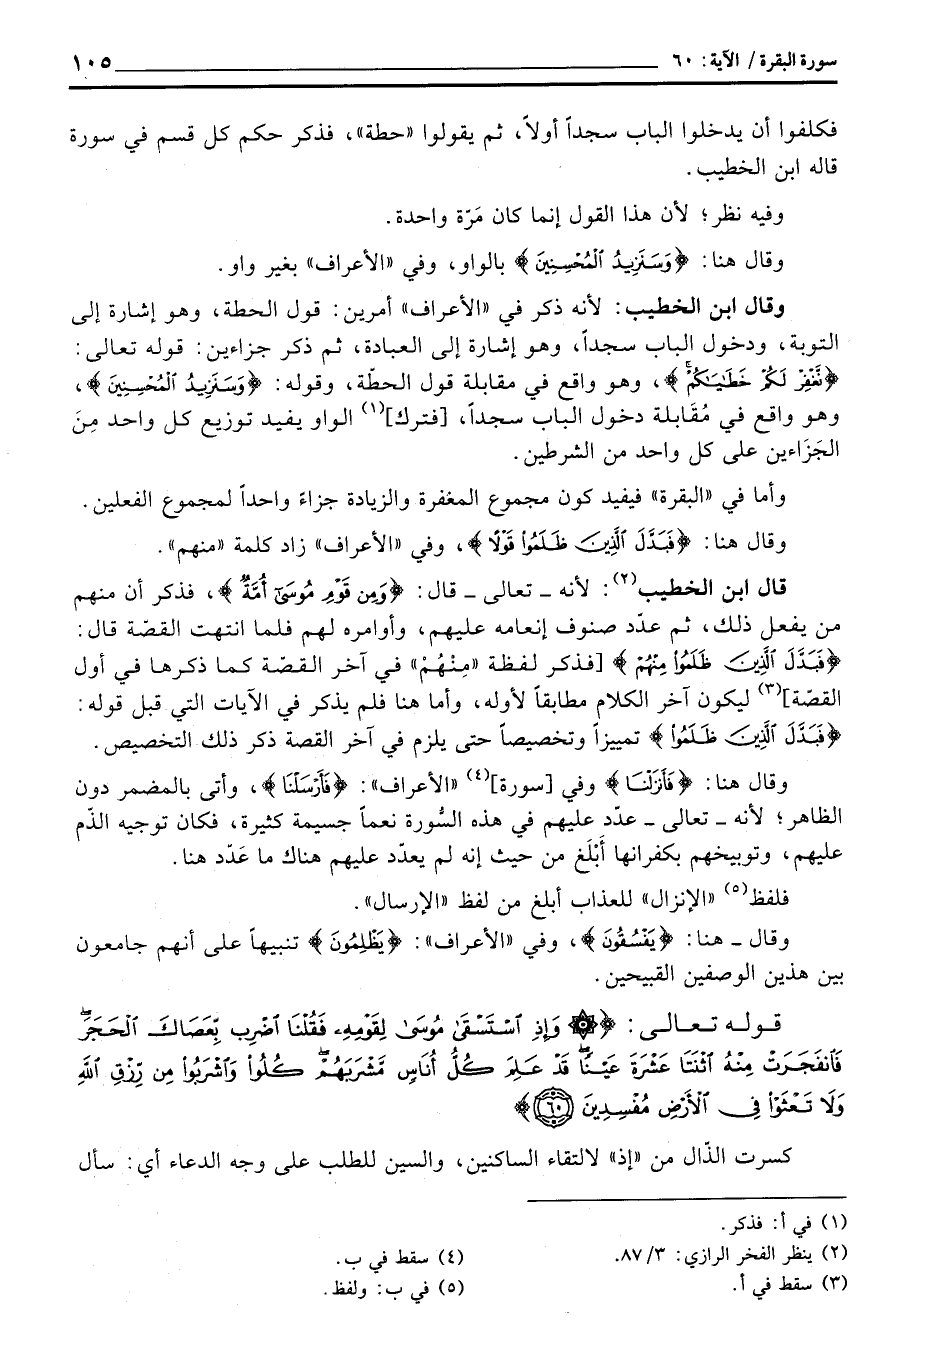 سورة البقرة/ الآية: ٦٠ ١٠٥
فكلفوا أن يدخلوا الباب سجداً أولاً، ثم يقولوا «حطة»، فذكر حكم كل قسم في سورة
قاله ابن الخطيب.
وفيه نظر؛ لأن هذا القول إنما كان مَرّة واحدة.
وقال هنا: ﴿وَسَنَزِيدُ ٱلْمُحْسِنِينَ﴾ بالواو، وفي «الأعراف» بغير واو.
وقال ابن الخطيب: لأنه ذكر في «الأعراف» أمرين: قول الحطة، وهو إشارة إلى
التوبة، ودخول الباب سجداً، وهو إشارة إلى العبادة، ثم ذكر جزاءين: قوله تعالى:
﴿نَّغْفِرْ لَكُمْ خَطَٰيَٰكُمْ﴾، وهو واقع في مقابلة قول الحطّة، وقوله: ﴿وَسَنَزِيدُ ٱلْمُحْسِنِينَ﴾،
وهو واقع في مُقَابلة دخول الباب سجداً، [فترك](١) الواو يفيد توزيع كل واحد مِنَ
الجَزَاءين على كل واحد من الشرطين.
وأما في «البقرة» فيفيد كون مجموع المغفرة والزيادة جزاءً واحداً لمجموع الفعلين.
وقال هنا: ﴿فَبَدَّلَ ٱلَّذِينَ ظَلَمُوا۟ قَوْلًا﴾، وفي «الأعراف» زاد كلمة «منهم».
قال ابن الخطيب(٢): لأنه ـ تعالى ـ قال: ﴿وَمِن قَوْمِ مُوسَىٰٓ أُمَّةٌ﴾، فذكر أن منهم
من يفعل ذلك، ثم عدّد صنوف إنعامه عليهم، وأوامره لهم فلما انتهت القصّة قال:
﴿فَبَدَّلَ ٱلَّذِينَ ظَلَمُوا۟ مِنْهُمْ﴾ [فذكر لفظة «مِنْهُمْ» في آخر القصّة كما ذكرها في أول
القصّة](٣) ليكون آخر الكلام مطابقاً لأوله، وأما هنا فلم يذكر في الآيات التي قبل قوله:
﴿فَبَدَّلَ ٱلَّذِينَ ظَلَمُوا۟﴾ تمييزاً وتخصيصاً حتى يلزم في آخر القصة ذكر ذلك التخصيص.
وقال هنا: ﴿فَأَنزَلْنَا﴾ وفي [سورة](٤) «الأعراف»: ﴿فَأَرْسَلْنَا﴾، وأتى بالمضمر دون
الظاهر؛ لأنه ـ تعالى ـ عدّد عليهم في هذه السُّورة نعماً جسيمة كثيرة، فكان توجيه الذم
عليهم، وتوبيخهم بكفرانها أَبْلَغ من حيث إنه لم يعدّد عليهم هناك ما عَدّد هنا.
فلفظ(٥) «الإنزال» للعذاب أبلغ من لفظ «الإرسال».
وقال ـ هنا: ﴿يَفْسُقُونَ﴾، وفي «الأعراف»: ﴿يَظْلِمُونَ﴾ تنبيهاً على أنهم جامعون
بين هذين الوصفين القبيحين.
قوله تعالى: ﴿۞ وَإِذِ ٱسْتَسْقَىٰ مُوسَىٰ لِقَوْمِهِۦ فَقُلْنَا ٱضْرِب بِّعَصَاكَ ٱلْحَجَرَۖ
فَٱنفَجَرَتْ مِنْهُ ٱثْنَتَا عَشْرَةَ عَيْنًاۖ قَدْ عَلِمَ كُلُّ أُنَاسٍ مَّشْرَبَهُمْۖ كُلُوا۟ وَٱشْرَبُوا۟ مِن رِّزْقِ ٱللَّهِ
وَلَا تَعْثَوْا۟ فِى ٱلْأَرْضِ مُفْسِدِينَ ٦٠﴾
كسرت الذّال من «إذ» لالتقاء الساكنين، والسين للطلب على وجه الدعاء أي: سأل
(١) في أ: فذكر.
(٢) ينظر الفخر الرازي: ٣/ ٨٧.
(٣) سقط في أ.
(٤) سقط في ب.
(٥) في ب: ولفظ.